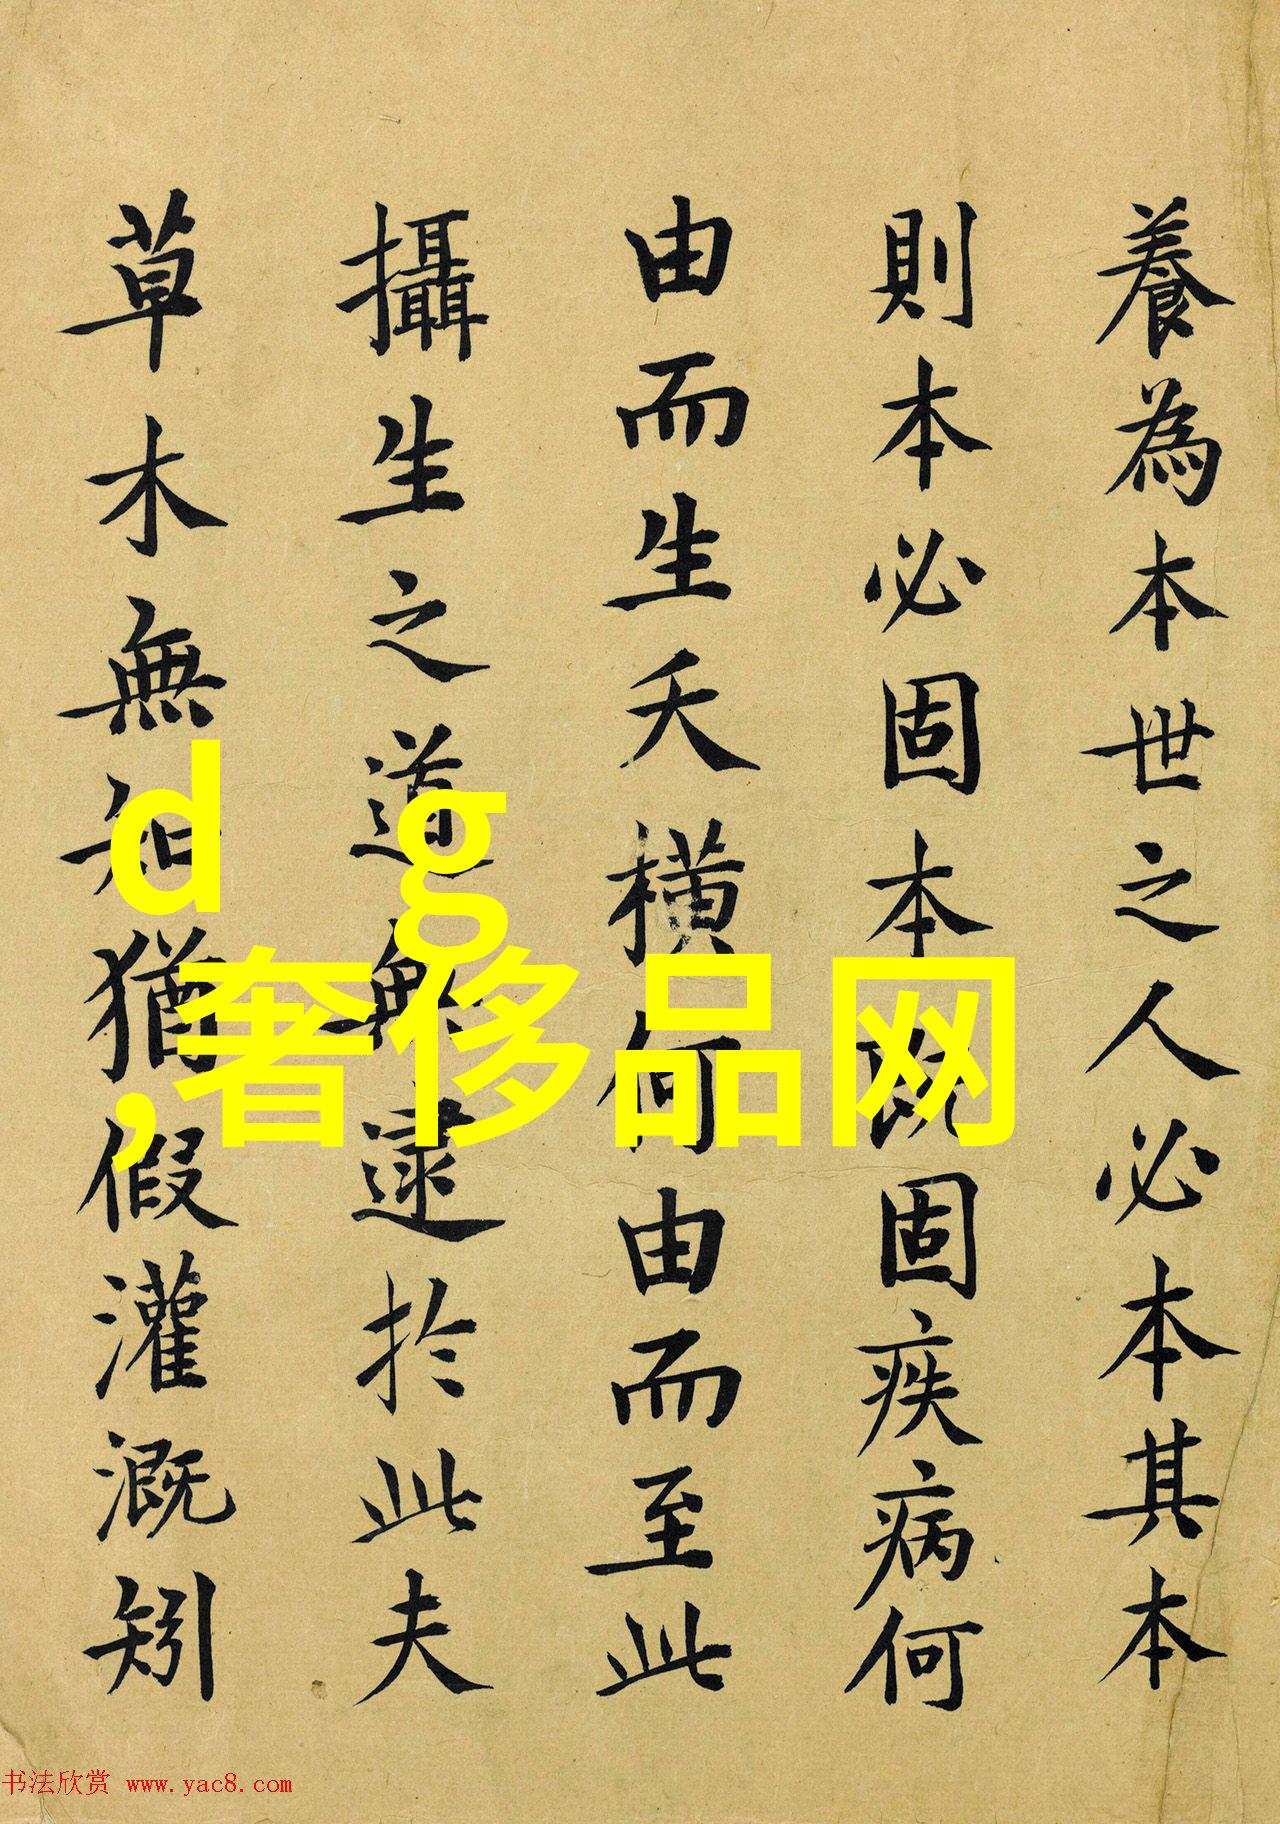 養為本世之人必本其本
則本必固本既固疾病何
由而生夭橫何由而至此
攝生之道無逮扵此夫
草木無知猶假灌溉矧
d g
,奢侈品网
书法欣赏 www.yac8.com